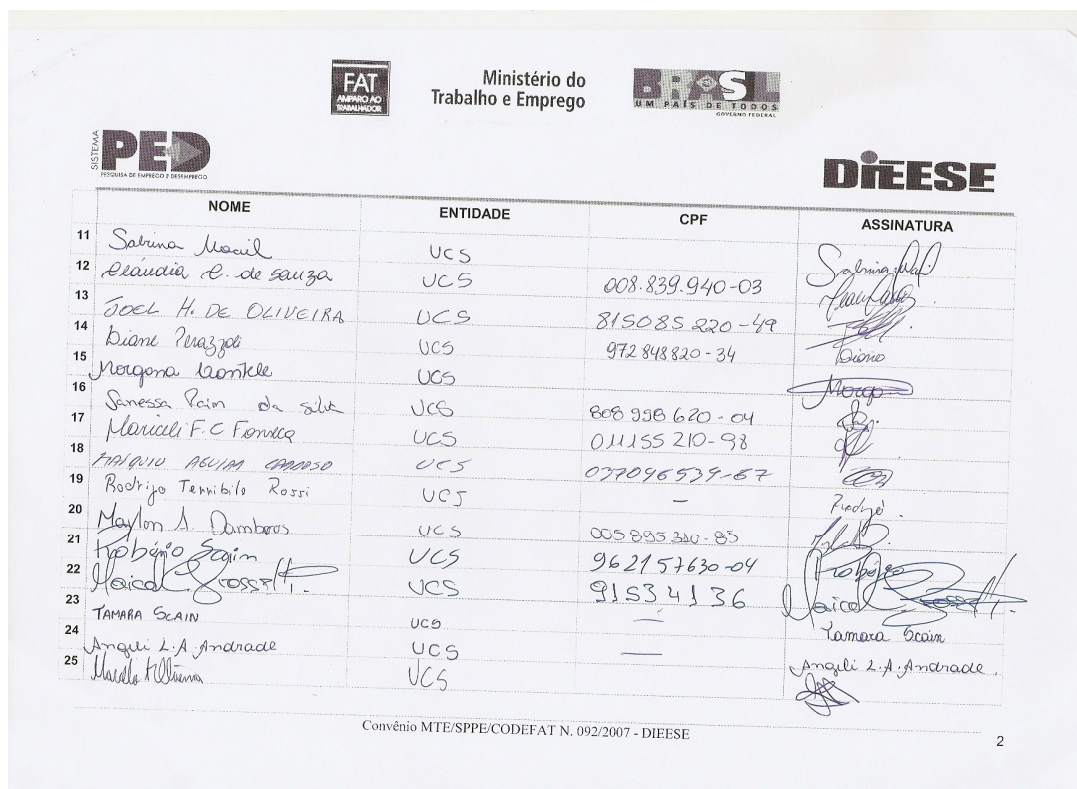 FAT
AMPARO AO
TRABALHADOR
Ministério do
Trabalho e Emprego
BRASIL
UM PAÍS DE TODOS
GOVERNO FEDERAL
SISTEMA PED
PESQUISA DE EMPREGO E DESEMPREGO
DIEESE
NOME ENTIDADE CPF ASSINATURA
11 Sabrina UCS Sabrina
12 Cláudia C. de Souza UCS 008.839.940-03
13 JOEL H. DE OLIVEIRA UCS 815085 220-49
14 Diane Perazzoli UCS 972848820-34 Diane
15 Morgana UCS Morga
16 Vanessa Paim da Silva UCS 808 998 620-04
17 Mariceli F.C Fonseca UCS 011155 210-98
18 AGUIAR CARDOSO UCS 037096539-67
19 Rodrigo Terribile Rossi UCS — Rodrigo
20 Maylon A. Damboros UCS
21 Robério UCS 962157630-04 Robério
22 Maicol Grossetti UCS 91534136 Maicol Grossetti
23 TAMARA SCAIN UCS — Tamara Scain
24 Angeli L.A. Andrade UCS — Angeli L.A. Andrade
25 UCS
Convênio MTE/SPPE/CODEFAT N. 092/2007 - DIEESE
2